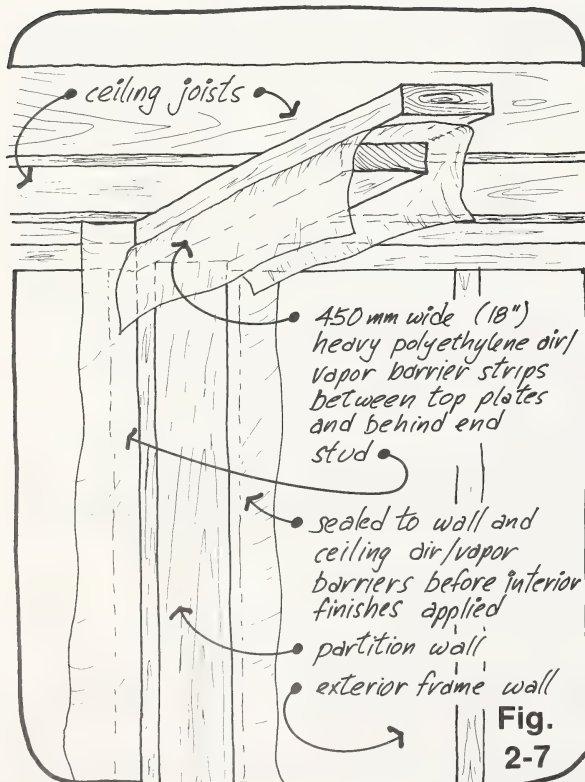 ceiling joists
450 mm wide (18")
heavy polyethylene air/
vapor barrier strips
between top plates
and behind end
stud
sealed to wall and
ceiling air/vapor
barriers before interior
finishes applied
partition wall
exterior frame wall
Fig.
2-7